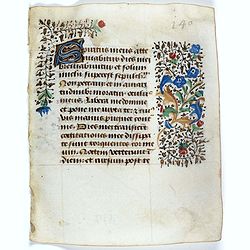 240
Spiritus meus atte
nuabitur dies mei
breviabuntur et solum
michi superest sepulcrum
Non peccavi et in amari
tudinibus moratur oculus
meus. Libera me domine
et pone me iuxta te et cui
usvis manus pugnet contra
me. Dies mei transierunt
cogitationes mee dissipa
te sunt torquentes cor me
um. Noctem verterunt in
diem et rursum post te